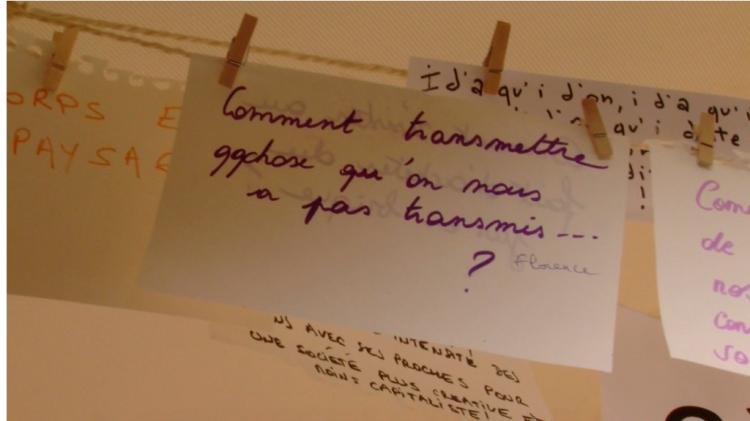 ORPS E
PAYSAG
Comment transmettre
qqchose qu'on nous
a pas transmis...
?
Florence
I d'a qu'i d'on, i d'a qu'i
qu'i d'ote
!
Com
de
nos
Con
so
INTENSITÉ DES
NS AVEC SES PROCHES POUR
UNE SOCIÉTÉ PLUS CREATIVE ET
MOINS CAPITALISTE!